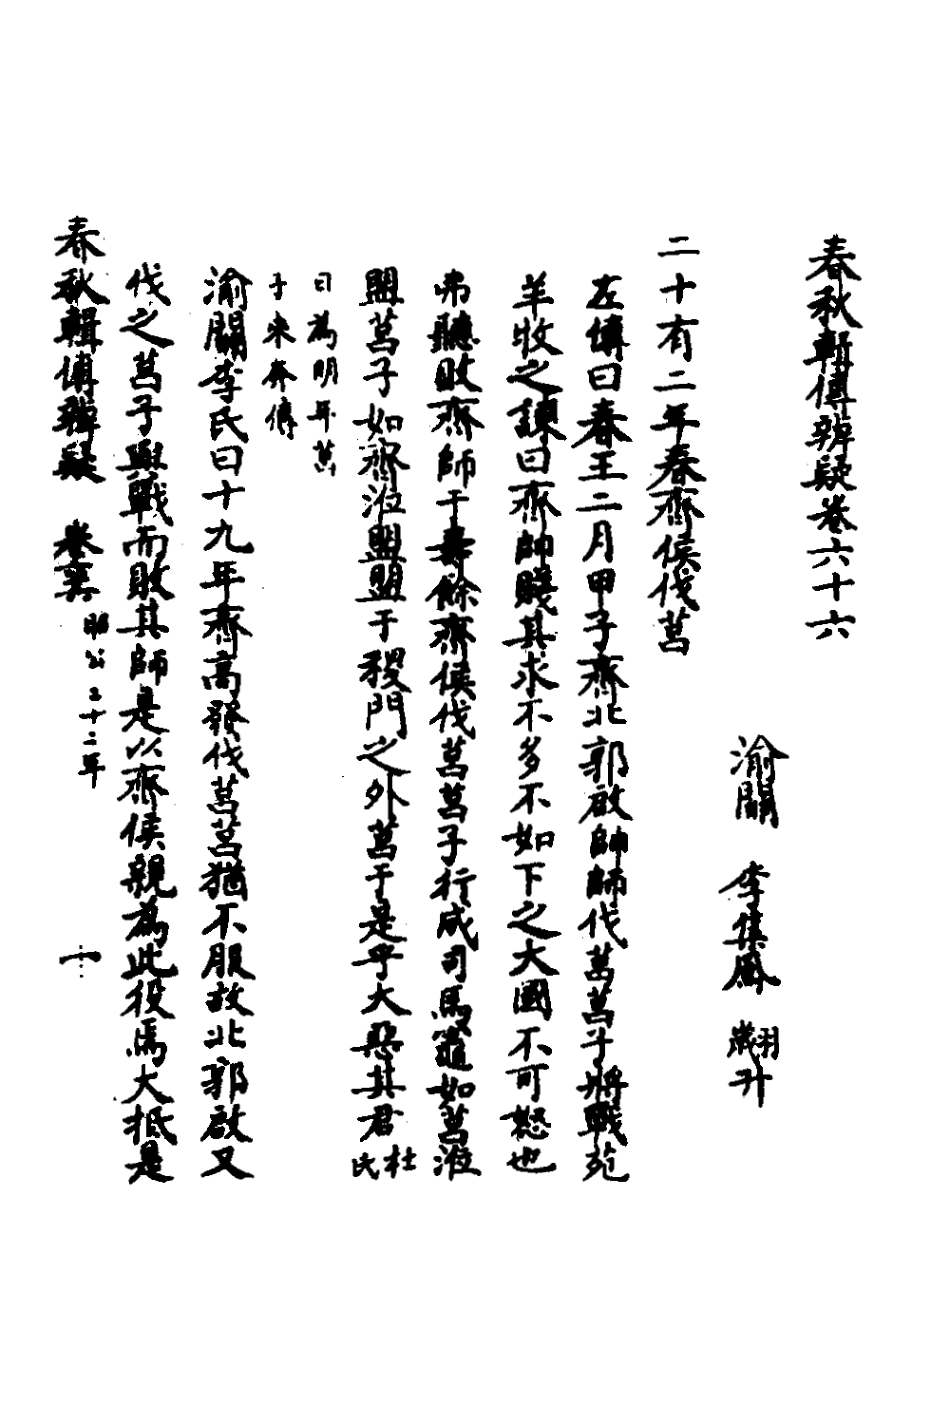 春秋輯傳辨疑卷六十六
渝關 李集鳳 翽升
二十有二年春齊侯伐莒
左傳曰春王二月甲子齊北郭啟帥師伐莒莒子將戰苑
羊牧之諫曰齊帥賤其求不多不如下之大國不可怒也
弗聽敗齊師于壽餘齊侯伐莒莒子行成司馬竈如莒涖
盟莒子如齊涖盟盟于稷門之外莒于是乎大惡其君杜氏
曰為明年莒
子來奔傳
渝關李氏曰十九年齊高發伐莒莒猶不服故北郭啟又
伐之莒子與戰而敗其師是以齊侯親為此役焉大抵是
春秋輯傳辨疑 卷 昭公二十二年 一